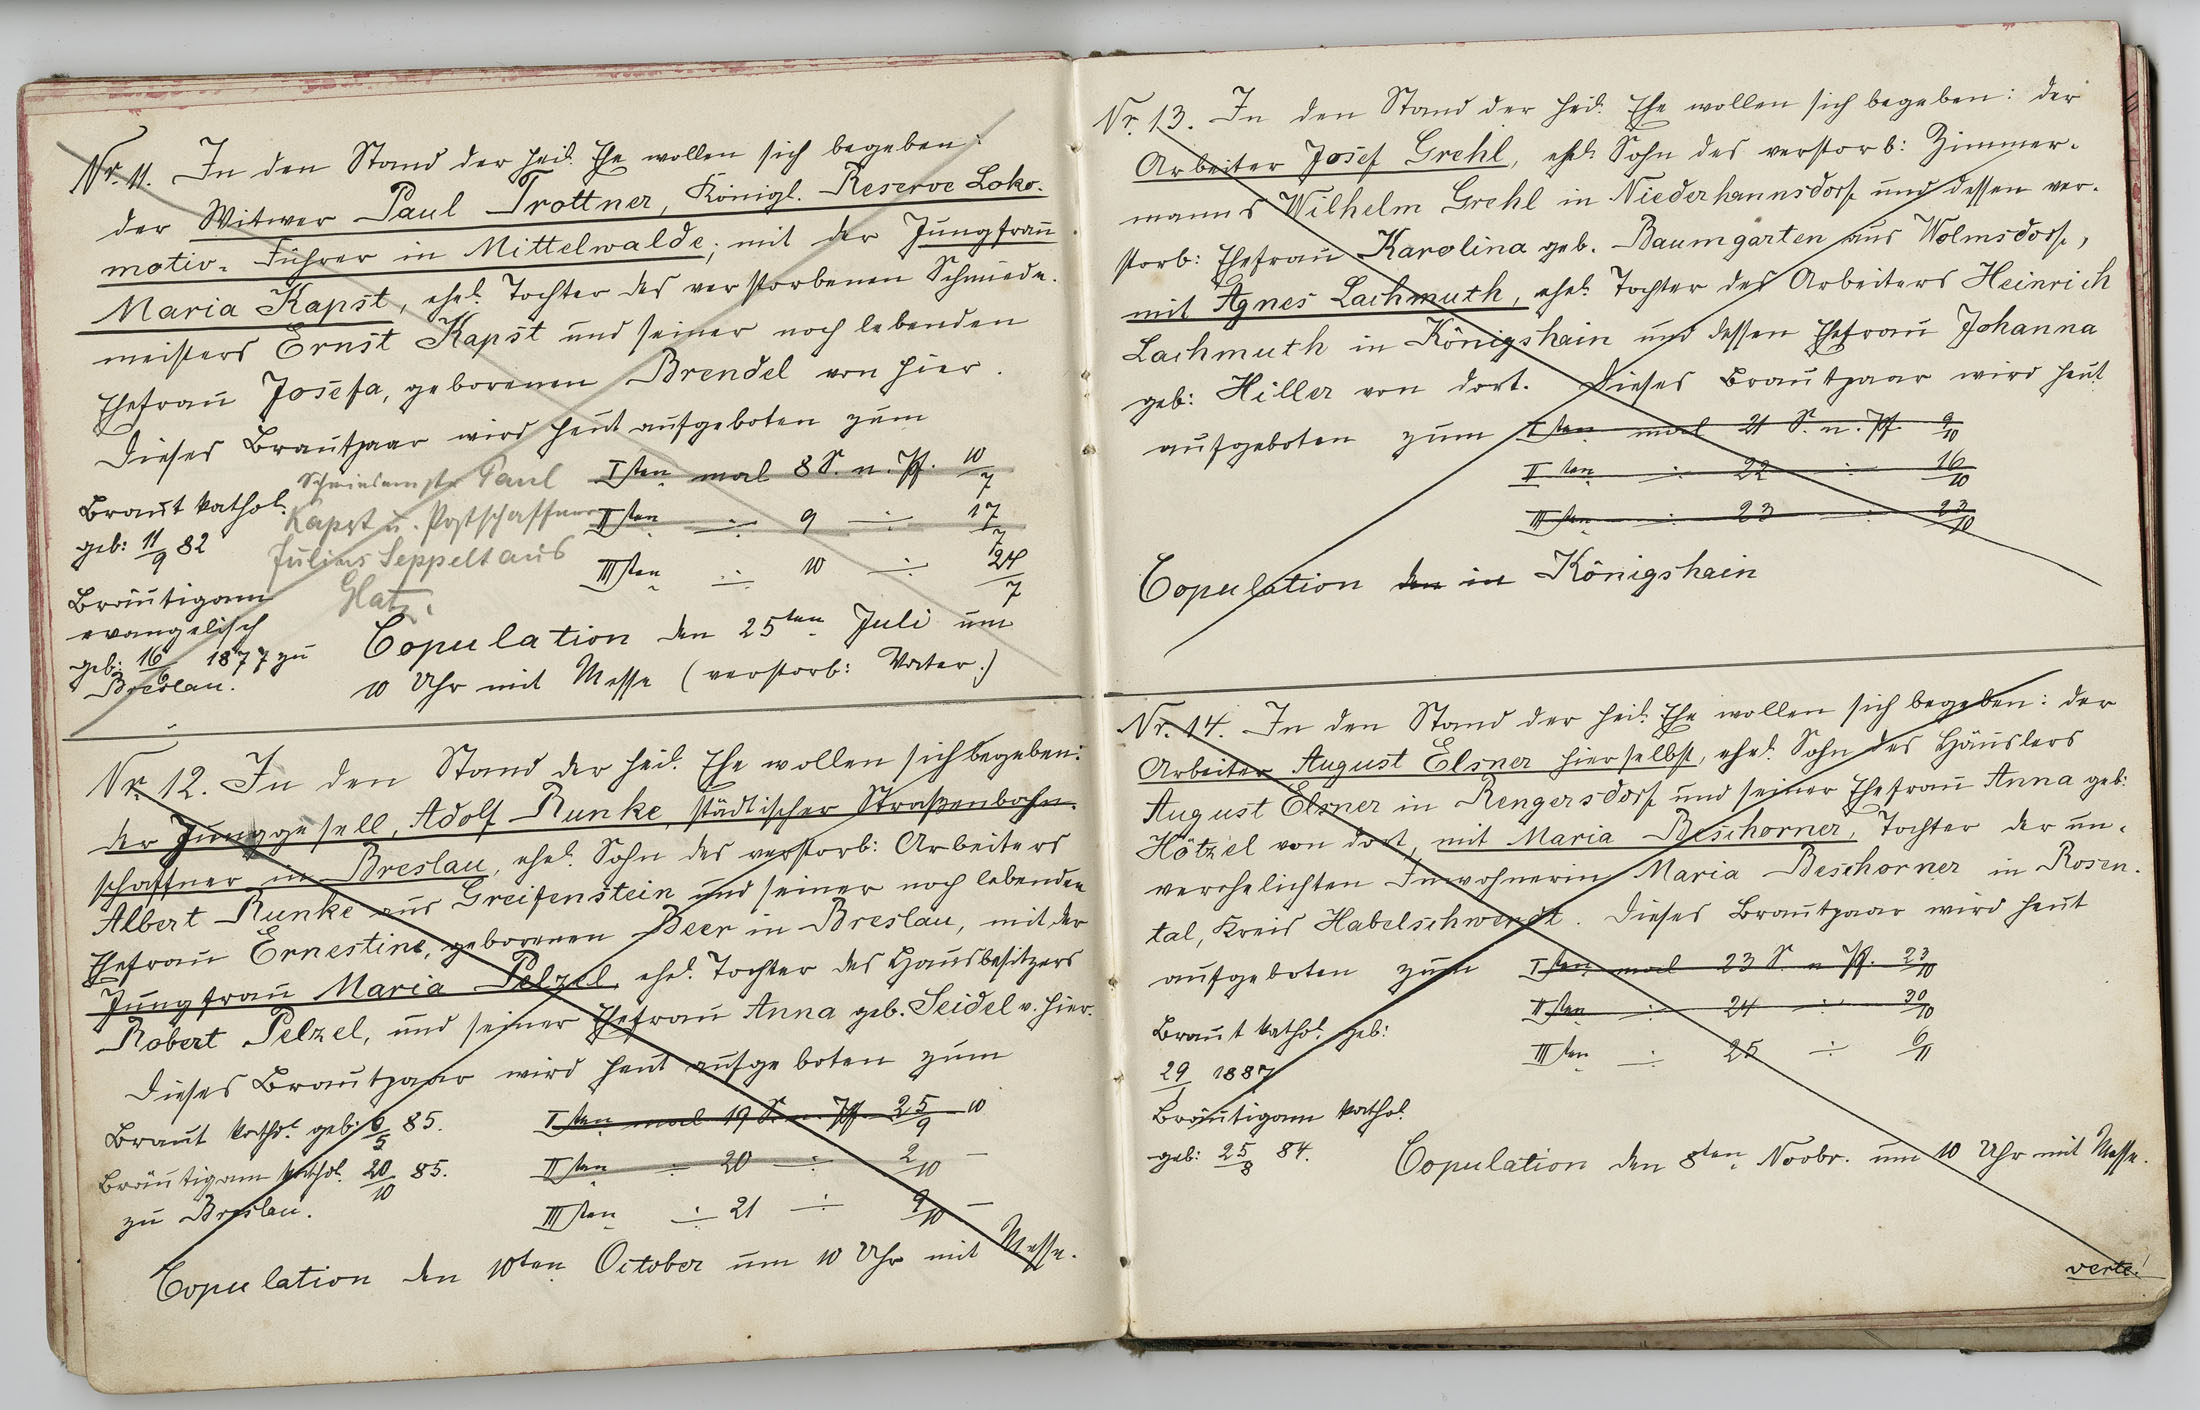 Nr. 11. In den Stand der heil. Ehe wollen sich begeben:
der Witwer Paul Trottner, Königl. Reserve Loko-
motiv-Führer in Mittelwalde, mit der Jungfrau
Maria Kapst, ehel. Tochter des verstorbenen Schmiede-
meisters Ernst Kapst und seiner noch lebenden
Ehefrau Josefa, geborenen Brendel von hier.
Dieses Brautpaar wird heut aufgeboten zum
Schmiedemstr Paul
Kapst u. Postschaffner
Julius Seppelt aus
Glatz.
Iten mal 8 S. n. Pf. 10/7
IIten ÷ 9 ÷ 17/7
IIIten ÷ 10 ÷ 24/7
Braut kathol.
geb: 11/9 82
Bräutigam
evangelisch
geb: 16/6 1877 zu
Breslau.
Copulation den 25ten Juli um
10 Uhr mit Messe (verstorb: Vater.)
Nr. 12. In den Stand der heil. Ehe wollen sich begeben:
der Junggesell, Adolf Runke, städtischer Straßenbahn-
schaffner in Breslau, ehel. Sohn des verstorb: Arbeiters
Albert Runke aus Greifenstein und seiner noch lebenden
Ehefrau Ernestine, geborenen Beer in Breslau, mit der
Jungfrau Maria Pelzel, ehel. Tochter des Hausbesitzers
Robert Pelzel, und seiner Ehefrau Anna geb. Seidel v. hier.
Dieses Brautpaar wird heut aufgeboten zum
Iten mal 19 S. n. Pf. 25/9 10
IIten ÷ 20 ÷ 2/10 –
IIIten ÷ 21 ÷ 9/10 –
Braut kathol. geb: 6/5 85.
Bräutigam kathol. 20/10 85.
zu Breslau.
Copulation den 10ten October um 10 Uhr mit Messe.
Nr. 13. In den Stand der heil. Ehe wollen sich begeben: der
Arbeiter Josef Grehl, ehel. Sohn des verstorb: Zimmer-
manns Wilhelm Grehl in Niederhannsdorf und dessen ver-
storb: Ehefrau Karolina geb. Baumgarten aus Wolmsdorf,
mit Agnes Lachmuth, ehel. Tochter des Arbeiters Heinrich
Lachmuth in Königshain und dessen Ehefrau Johanna
geb: Hiller von dort. Dieses Brautpaar wird heut
aufgeboten zum Iten mal 21 S. n. Pf. 9/10
IIten ÷ 22 ÷ 16/10
IIIten ÷ 23 ÷ 23/10
Copulation den in Königshain
Nr. 14. In den Stand der heil. Ehe wollen sich begeben: der
Arbeiter August Elsner hierselbst, ehel. Sohn des Häuslers
August Elsner in Rengersdorf und seiner Ehefrau Anna geb:
Hötzel von dort, mit Maria Beschorner, Tochter der un-
verehelichten Inwohnerin Maria Beschorner in Rosen-
tal, Kreis Habelschwerdt. Dieses Brautpaar wird heut
aufgeboten zum Iten mal 23 S. n Pf. 23/10
IIten ÷ 24 ÷ 30/10
IIIten ÷ 25 ÷ 6/11
Braut kathol. geb:
29/1 1887
Bräutigam kathol.
geb: 25/8 84.
Copulation den 8ten Novbr. um 10 Uhr mit Messe.
verte!